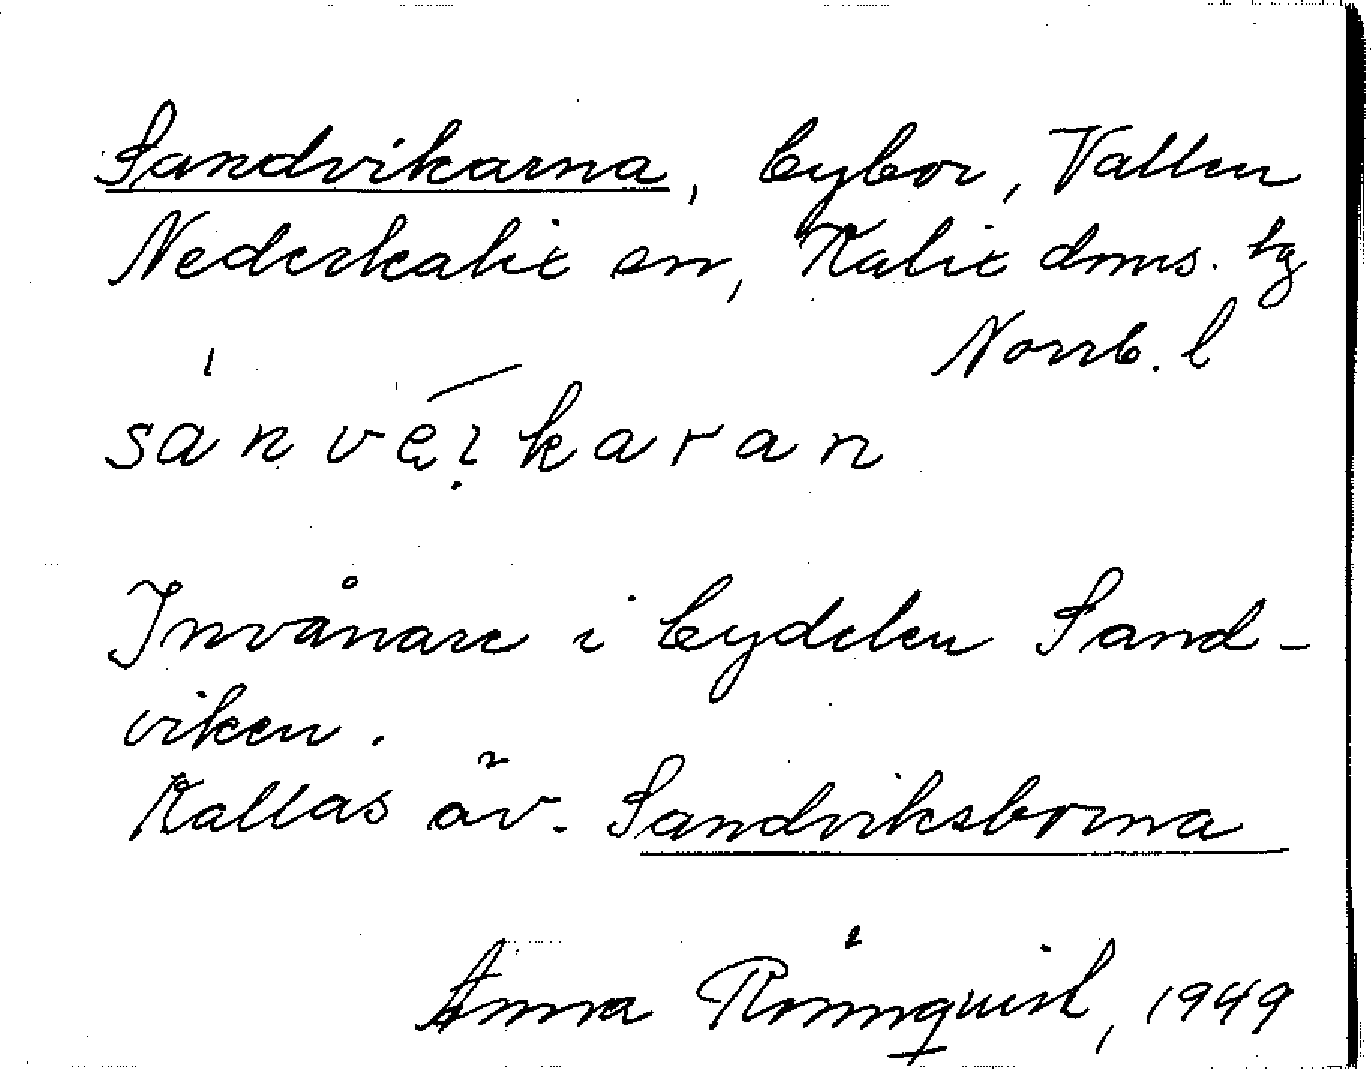 Sandvikarna, bybor, Vallen
Nederkalix sn, Kalix doms. hg
Norrb. l
sánvẹ́ikaran
Invånare i bydelen Sand-
viken.
Kallas äv. Sandviksborna
Anna Rönnquist, 1949